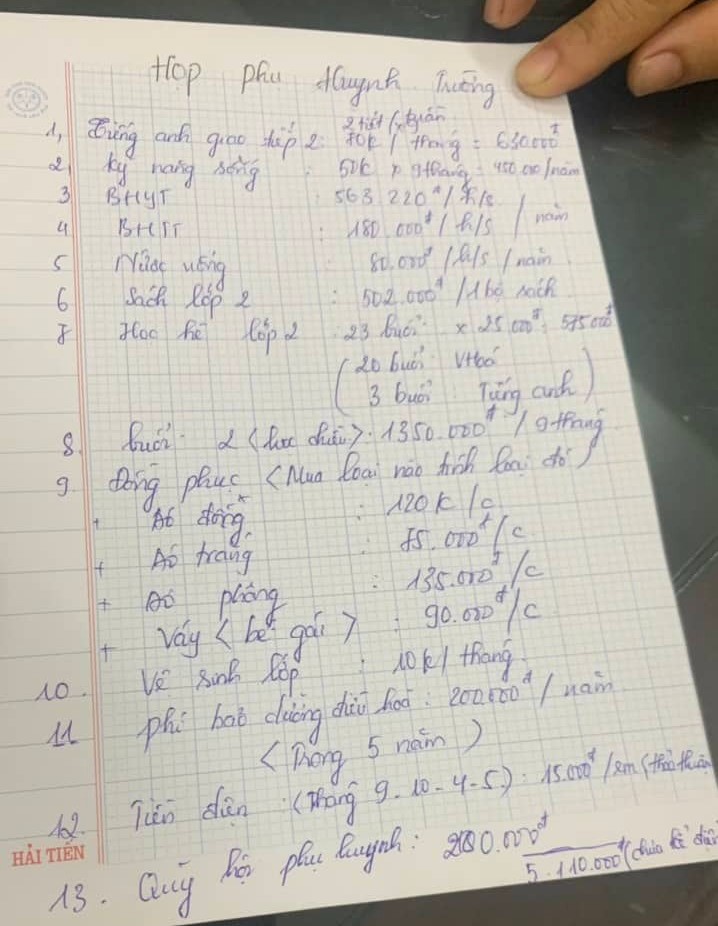 Họp phụ Huynh Trường
2 tiết / tuần
1, Tiếng anh giao tiếp 2: 70k / tháng = 630.000đ
2, kỹ năng sống : 50k x 9 tháng = 450.000/năm
3 BHYT : 563.220đ/h/s
4 BHTT : 180.000đ/h/s / năm
5 Nước uống : 80.000đ/h/s / năm
6 Sách lớp 2 : 502.000đ/1 bộ sách
7 Học hè lớp 2 : 23 buổi x 25.000đ = 575.000đ
( 20 buổi Vhoá
3 buổi Tiếng anh )
8. buổi 2 <học chiều>: 1350.000đ / 9 tháng
9. Đồng phục <Mua loại nào tính loại đó>
+ Áo đông : 120k/c
+ Áo trắng : 75.000đ/c
+ Áo phông : 135.000đ/c
+ Váy <bé gái> : 90.000đ/c
10. Vệ sinh lớp : 10k/ tháng
11 phí bảo dưỡng điều hoà : 200.000đ / năm
<Trong 5 năm>
12. Tiền điện : (Tháng 9-10-4-5) : 15.000đ/em (thoả thuận
HẢI TIẾN
13. Quỹ hội phụ huynh : 200.000đ
5.110.000đ (chưa kể điện